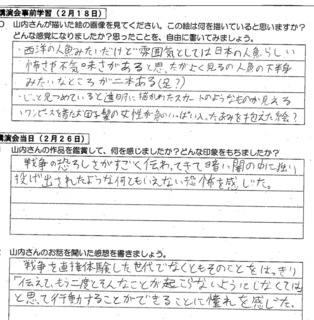 講演会事前学習(2月18日)
山内さんが描いた絵の画像を見てください。この絵は何を描いていると思いますか?
どんな感覚になりましたか?思ったことを、自由に書いてみましょう。
・西洋の人魚みたいだけど雰囲気としては日本の人魚らしい
怖さや不気味さがあると思った
みたいなところが二本ある(足?)
・じっと見つめていると
スカートのようなものが見える
ワンピースを着た
女性が魚のいっぱい入ったあみを抱えた絵?
講演会当日(2月26日)
山内さんの作品を鑑賞して、何を感じましたか?どんな印象をもちましたか?
戦争の恐ろしさがすごく伝わってきて暗い闇の中に
投げ出されたような何ともいえない恐怖を感じた。
山内さんのお話を聞いた感想を書きましょう。
戦争を直接体験した世代でなくともそのことをはっきり
伝えて、もう二度とそんなことが起こらないようにしなくては
と思って行動することができることに憧れを感じた。